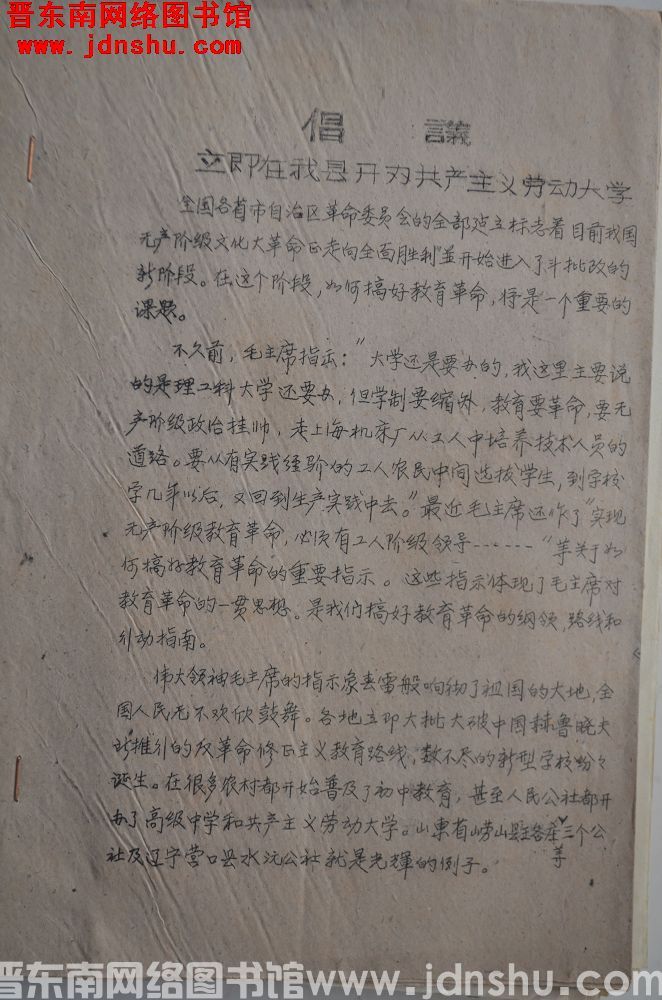 晋东南网络图书馆
www.jdnshu.com
倡 議
立即在我县开办共产主义劳动大学
全国各省市自治区革命委员会的全部建立标志着目前我国
无产阶级文化大革命正走向全面胜利"並开始进入了斗批改的
新阶段。在这个阶段,如何搞好教育革命,将是一个重要的
课题。
不久前,毛主席指示:"大学还是要办的,我这里主要说
的是理工科大学还要办,但学制要缩短,教育要革命,要无
产阶级政治挂帅,走上海机床厂从工人中培养技术人员的
道路。要从有实践经验的工人农民中间选拔学生,到学校
学几年以后,又回到生产实践中去。"最近毛主席还作了"实现
无产阶级教育革命,必须有工人阶级领导……"等关于如
何搞好教育革命的重要指示。这些指示体现了毛主席对
教育革命的一贯思想。是我们搞好教育革命的纲领,路线和
行动指南。
伟大领袖毛主席的指示象春雷般响彻了祖国的大地,全
国人民无不欢欣鼓舞。各地立即大批大破中国赫鲁晓夫
所推行的反革命修正主义教育路线,数不尽的新型学校纷々
诞生。在很多农村都开始普及了初中教育,甚至人民公社都开
办了高级中学和共产主义劳动大学。山東省崂山县三个公
社及辽宁营口县水沅公社就是光輝的例子。
等
晋东南网络图书馆www.jdnshu.com